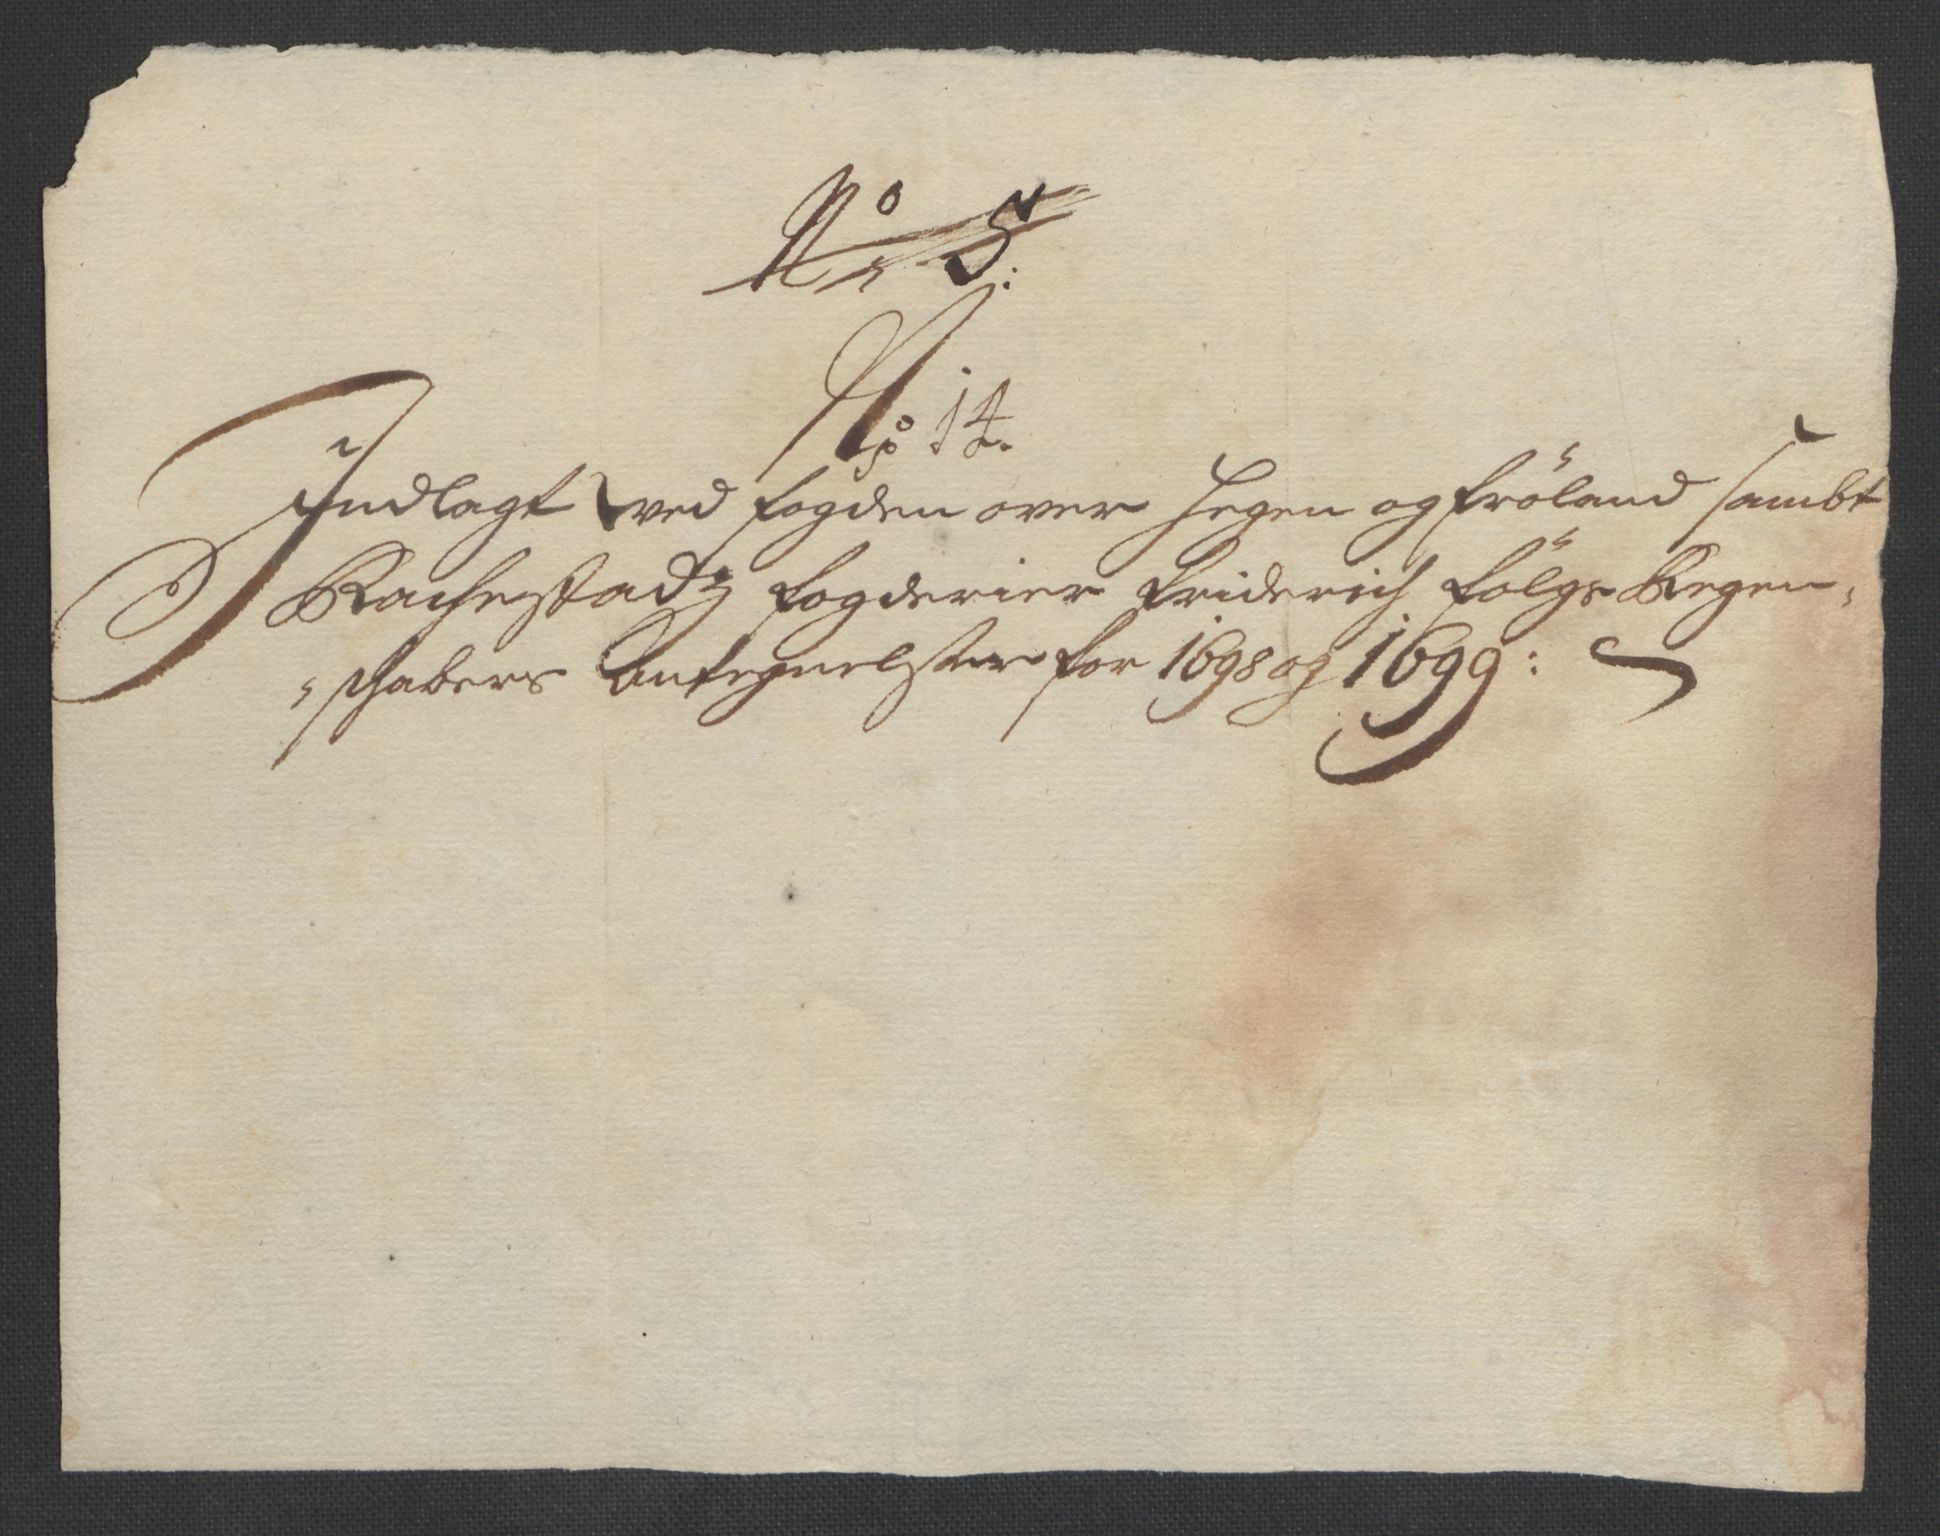 No 5:
No 14.
Indlagt ved fogden over Heggen og Fröland sambt
Rachestadz fogderier Friderich Fölgs Regen-
-schabers Antegnelser for 1698 og 1699: